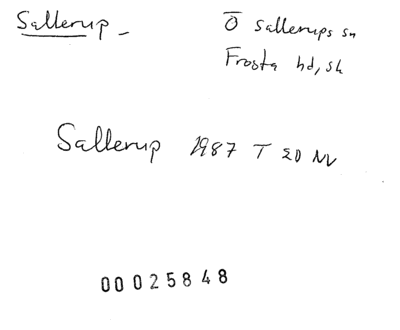 Sallerup
Ö Sallerups sn
Frosta hd, sk
Sallerup 1987 T ED NV
00025848